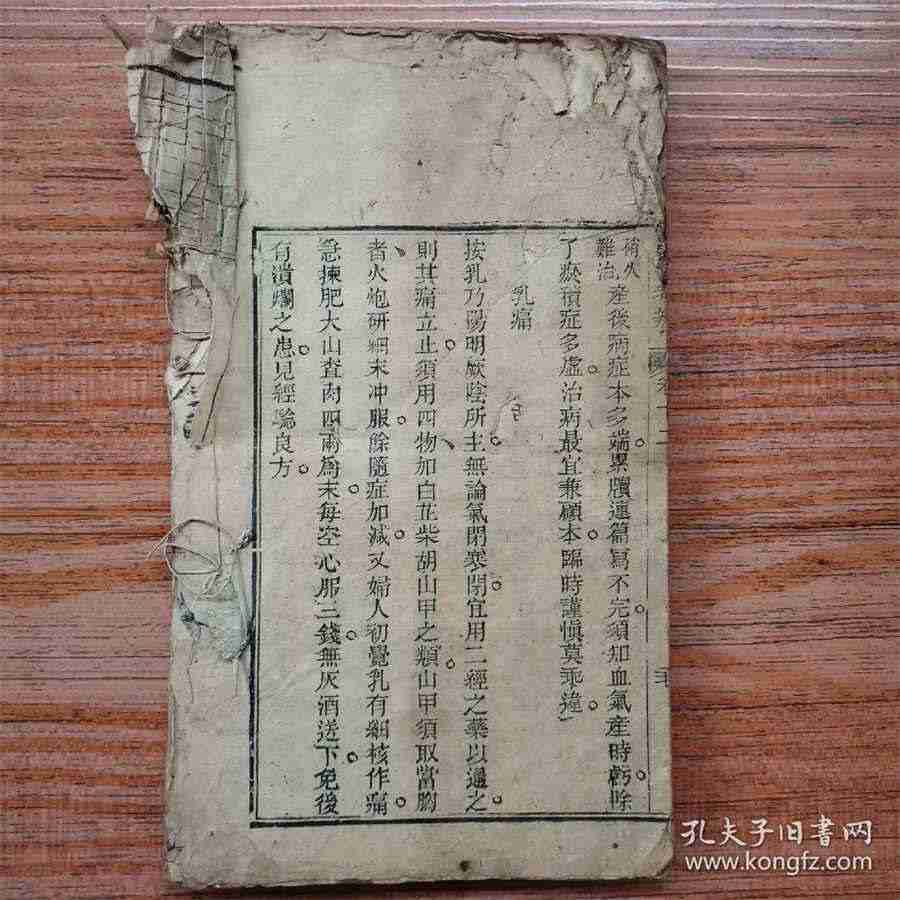 稍久
難治
產後病症本多端槩牘連篇寫不完須知血氣產時虧除
了瘀積症多虛治病最宜兼顧本臨時謹慎莫乖違
乳痛
按乳乃陽明厥陰所主無論氣閉寒閉宜用二經之藥以通之
則其痛立止須用四物加白芷柴胡山甲之類山甲須取當胸
者火炮研細末冲服餘隨症加减又婦人初覺乳有細核作痛
急揀肥大山查肉四兩爲末每空心服三錢無灰酒送下免後
有潰爛之患見經驗良方
孔夫子旧書网
www.kongfz.com